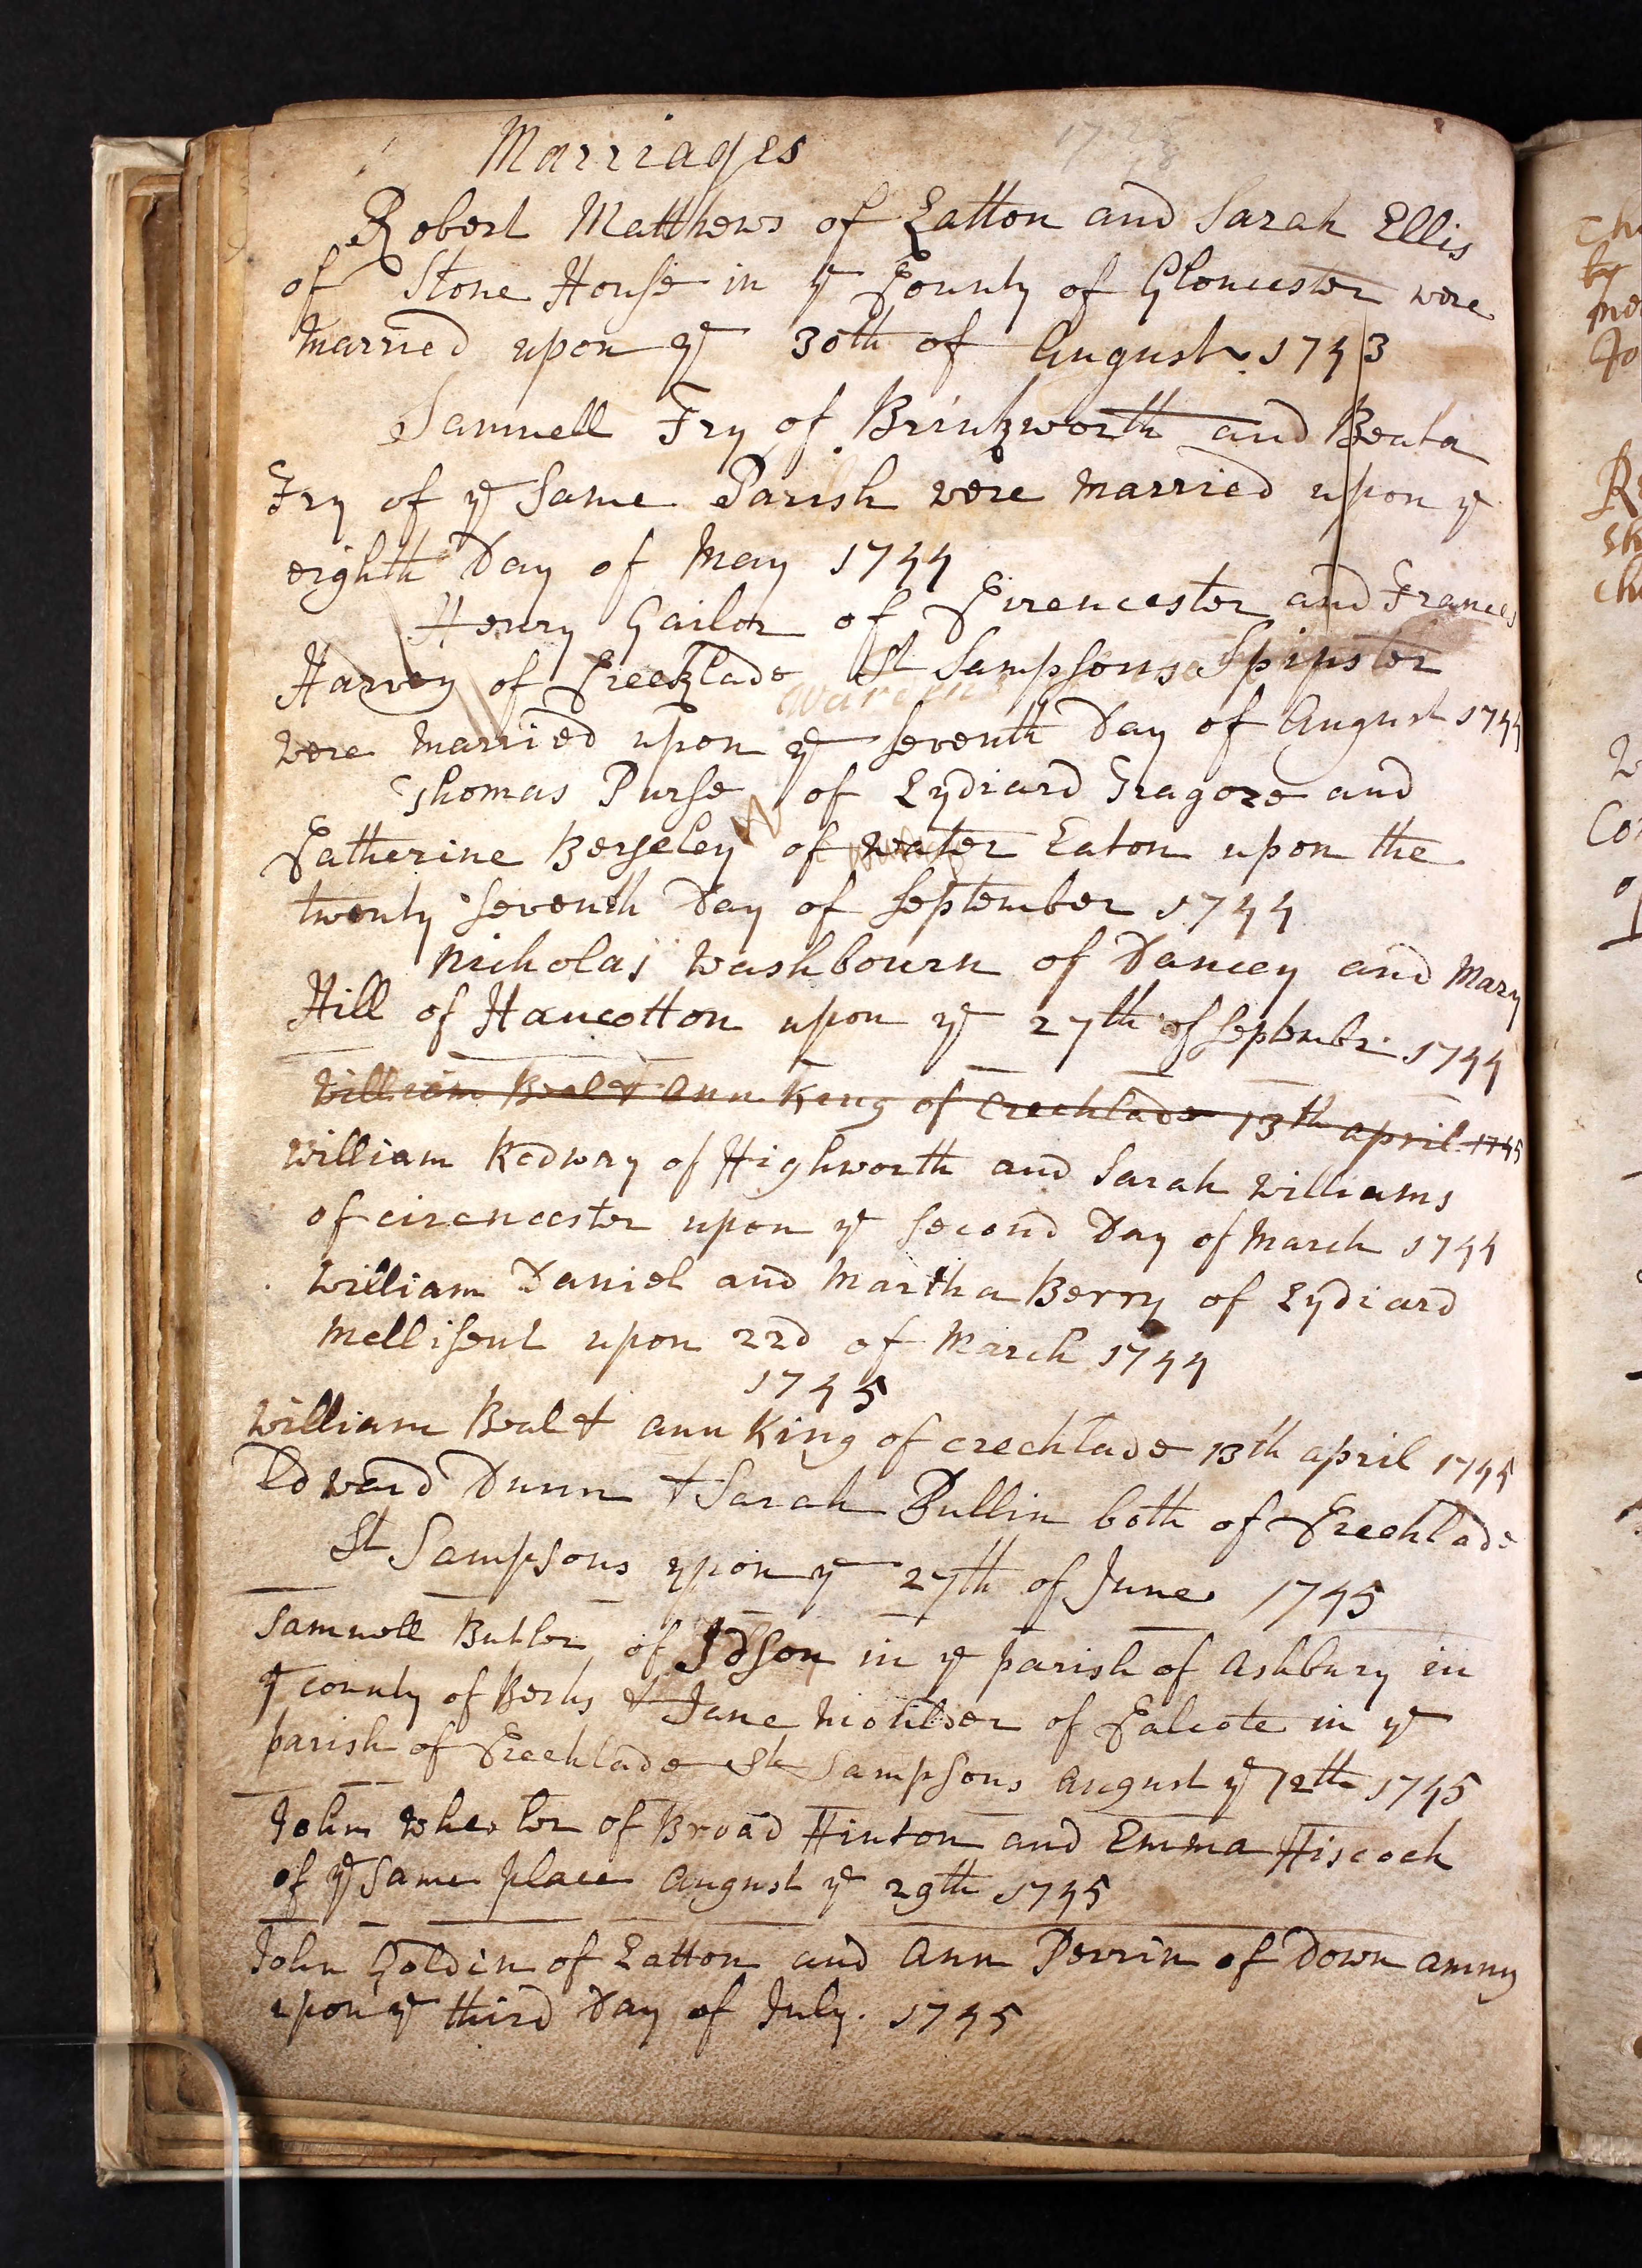 Marriages
Robert Matthews of Latton and Sarah Ellis
of Stone House in ye County of Gloucester were
married upon ye 30th of August 1743
Samuell Fry of Brinkworth and Beata
Fry of ye Same Parish were married upon ye
eighth Day of May 1744
Henry Gailor of Cirencester and Frances
Harvey of Creeklade St Sampsons Spinster
were married upon ye Seventh Day of August 1744
Thomas Purse of Lydiard Tragoze and
Catherine Berseley of water Eaton upon the
twenty Seventh Day of September 1744
Nicholas Washbourn of Dancey and Mary
Hill of Hancotton upon ye 27th of Septembr 1744
William Beal & Ann King of Crechlade 13th april 1745
William Kedway of Highworth and Sarah Williams
of cirencester upon ye Second Day of March 1744
William Daniel and Martha Berry of Lydiard
Mellisent upon 22d of March 1744
1745
William Beal & ann King of crechlade 13th april 1745
Edward Dunn & Sarah Pullin both of Crechlade
St Sampsons upon ye 27th of June 1745
Samuell Butler of Idson in ye parish of Ashbury in
ye county of Berks & Jane of Calcote in ye
parish of Crechlade St Sampsons August ye 12th 1745
John of Broad Hinton and Emma Hiscock
of ye Same place August ye 29th 1745
John Goldin of Latton and Ann Perrin of Down amny
upon ye third Day of July. 1745